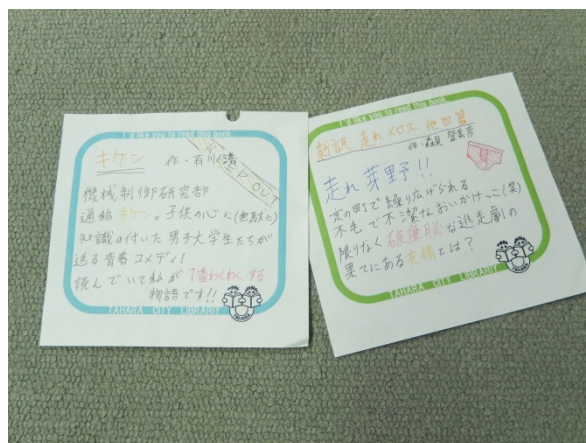 I'd like you to read this book.
キケン 作・有川浩
KEEP OUT
機械制御研究部
通称キケン。子供の心に(無駄に)
知識の付いた男子大学生たちが
送る青春コメディ!
読んでいて私が1番わくわくする
物語です!!
TAHARA CITY LIBRARY
I'd like you to read this book.
新訳 走れメロス 他四篇
作・森見登美彦
走れ芽野!!
京の町で繰り広げられる
不毛で不潔なおいかけっこ(笑)
限りなく破廉恥な逃走劇の
果てにある友情とは?
TAHARA CITY LIBRARY